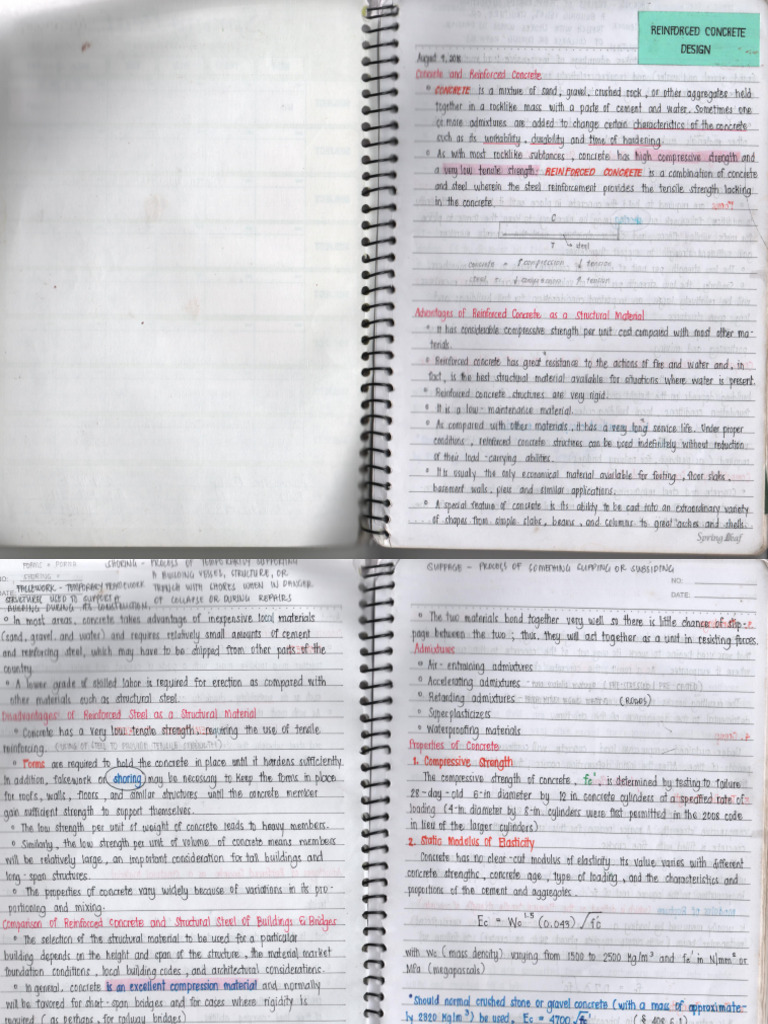 REINFORCED CONCRETE
DESIGN
August 9, 2018
Concrete and Reinforced Concrete
° CONCRETE is a mixture of sand, gravel, crushed rock, or other aggregates held
together in a rocklike mass with a paste of cement and water. Sometimes one
or more admixtures are added to change certain characteristics of the concrete
such as its workability, durability and time of hardening.
° As with most rocklike substances, concrete has high compressive strength and
a very low tensile strength. REINFORCED CONCRETE is a combination of concrete
and steel wherein the steel reinforcement provides the tensile strength lacking
in the concrete.
C
T steel
concrete = ↑ compression ↓ tension
steel = ↓ compression ↑ tension
Advantages of Reinforced Concrete as a Structural Material
° It has considerable compressive strength per unit cost compared with most other ma-
terials.
° Reinforced concrete has great resistance to the actions of fire and water and, in
fact, is the best structural material available for situations where water is present.
° Reinforced concrete structures are very rigid.
° It is a low-maintenance material.
° As compared with other materials, it has a very long service life. Under proper
conditions, reinforced concrete structures can be used indefinitely without reduction
of their load-carrying abilities.
° It is usually the only economical material available for footing, floor slabs,
basement walls, piers and similar applications.
° A special feature of concrete is its ability to be cast into an extraordinary variety
of shapes from simple slabs, beams, and columns to great arches and shells.
Spring Leaf
SHORING - PROCESS OF TEMPORARILY SUPPORTING
A BUILDING, VESSEL, STRUCTURE, OR
TRENCH WITH SHORES WHEN IN DANGER
OF COLLAPSE OR DURING REPAIRS
FALSEWORK - TEMPORARY FRAMEWORK
STRUCTURE USED TO SUPPORT A
BUILDING DURING ITS CONSTRUCTION.
° In most areas, concrete takes advantage of inexpensive local materials
(sand, gravel, and water) and requires relatively small amounts of cement
and reinforcing steel, which may have to be shipped from other parts of the
country.
° A lower grade of skilled labor is required for erection as compared with
other materials such as structural steel.
Disadvantages of Reinforced Steel as a Structural Material
° Concrete has a very low tensile strength, requiring the use of tensile
reinforcing. (USING OF STEEL TO PROVIDE TENSILE STRENGTH)
° Forms are required to hold the concrete in place until it hardens sufficiently.
In addition, falsework or shoring may be necessary to keep the forms in place
for roofs, walls, floors, and similar structures until the concrete member
gain sufficient strength to support themselves.
° The low strength per unit of weight of concrete leads to heavy members.
° Similarly, the low strength per unit of volume of concrete means members
will be relatively large, an important consideration for tall buildings and
long-span structures.
° The properties of concrete vary widely because of variations in its pro-
portioning and mixing.
Comparison of Reinforced Concrete and Structural Steel of Buildings & Bridges
° The selection of the structural material to be used for a particular
building depends on the height and span of the structure, the material market
foundation conditions, local building codes, and architectural considerations.
° In general, concrete is an excellent compression material and normally
will be favored for short-span bridges and for cases where rigidity is
required (as perhaps, for railway bridges)
SLIPPAGE - PROCESS OF SOMETHING SLIPPING OR SUBSIDING
NO.:
DATE:
° The two materials bond together very well so there is little chance of slip-
page between the two; thus, they will act together as a unit in resisting forces.
Admixtures
° Air-entraining admixtures
° Accelerating admixtures
° Retarding admixtures (ROADS)
° Superplasticizers
° Waterproofing materials
Properties of Concrete
1. Compressive Strength
The compressive strength of concrete, fc', is determined by testing to failure
28-day-old 6-in diameter by 12 in concrete cylinders at a specified rate of
loading (4-in diameter by 8-in cylinders were first permitted in the 2008 code
in lieu of the larger cylinders)
2. Static Modulus of Elasticity
Concrete has no clear-cut modulus of elasticity. Its value varies with different
concrete strengths, concrete age, type of loading, and the characteristics and
proportions of the cement and aggregates.
Ec = Wc^1.5 (0.043) √fc'
with Wc (mass density) varying from 1500 to 2500 Kg/m³ and fc' in N/mm² or
MPa (megapascals)
*Should normal crushed stone or gravel concrete (with a mass of approximate-
ly 2320 Kg/m³) be used, Ec = 4700√fc'